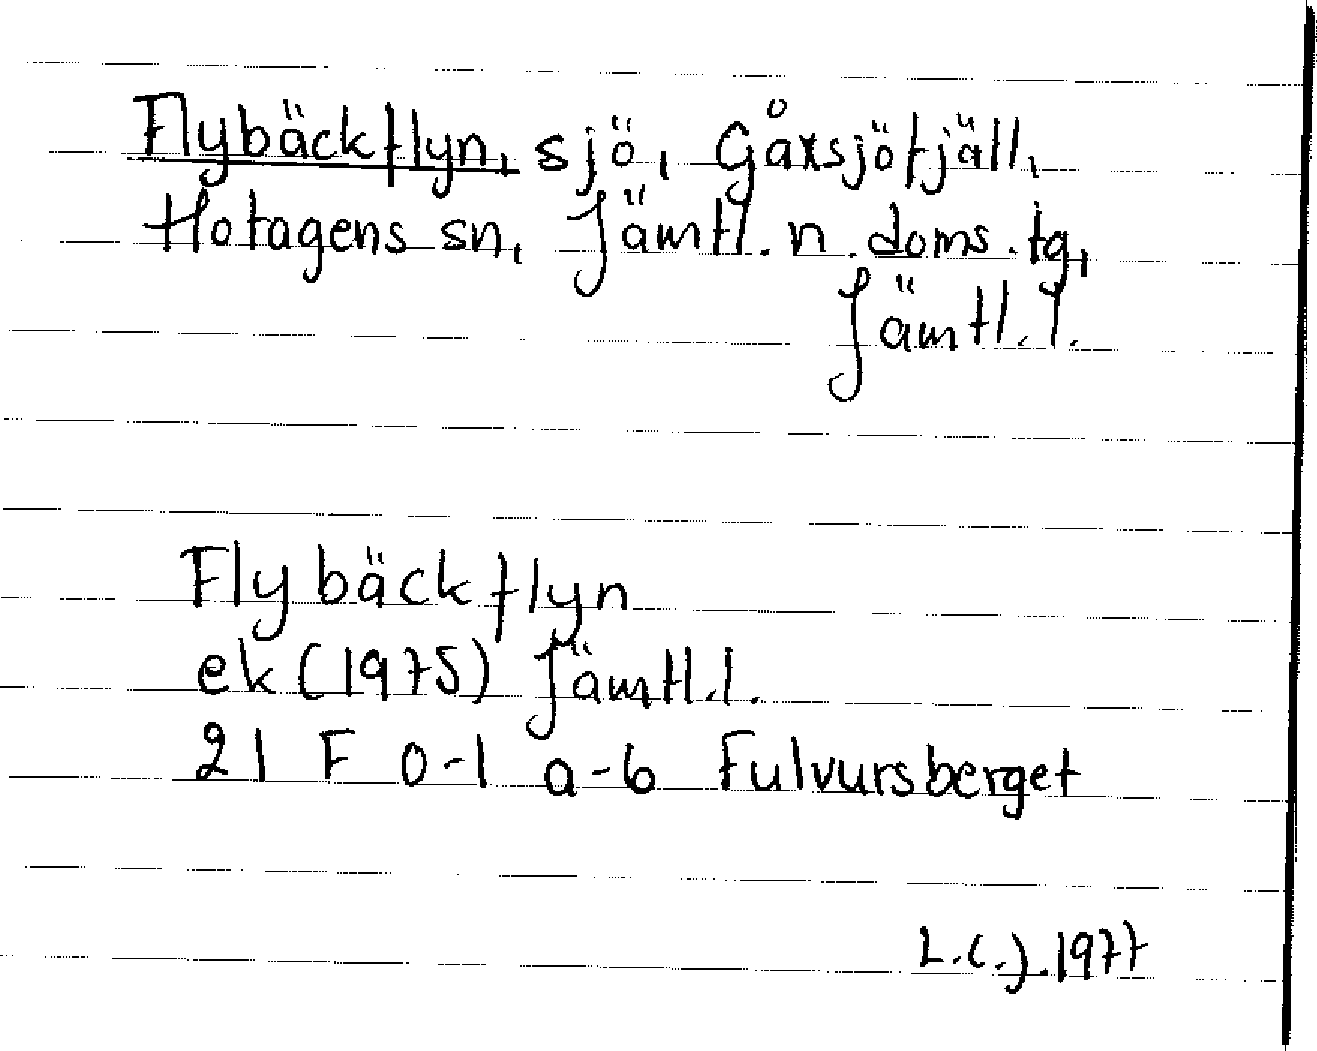 Flybäckflyn, sjö, Gåxsjöfjäll,
Hotagens sn, Jämtl. n. doms. tg,
Jämtl. l.
Flybäckflyn
ek (1975) Jämtl. l.
21 F 0-1 a-b Fulvursberget
L.C.J. 1977